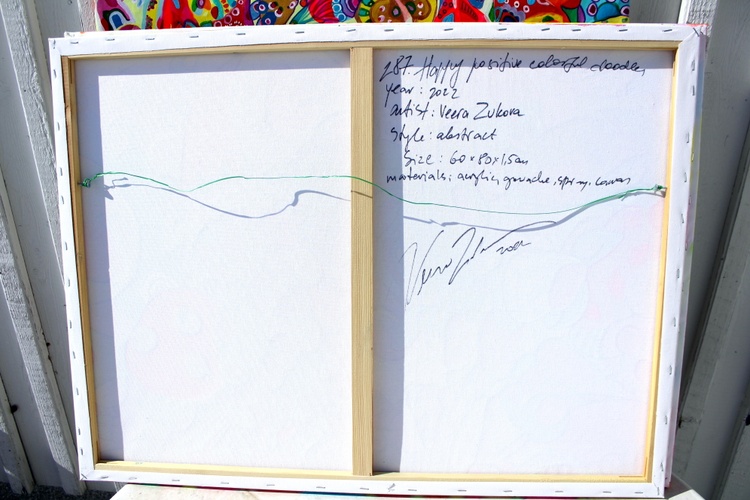 287. Happy positive colorful doodles
year: 2022
artist: Veera Zukova
style: abstract
Size: 60x80x1,5cm
materials: acrylic, gouache, spray, canvas
Veera